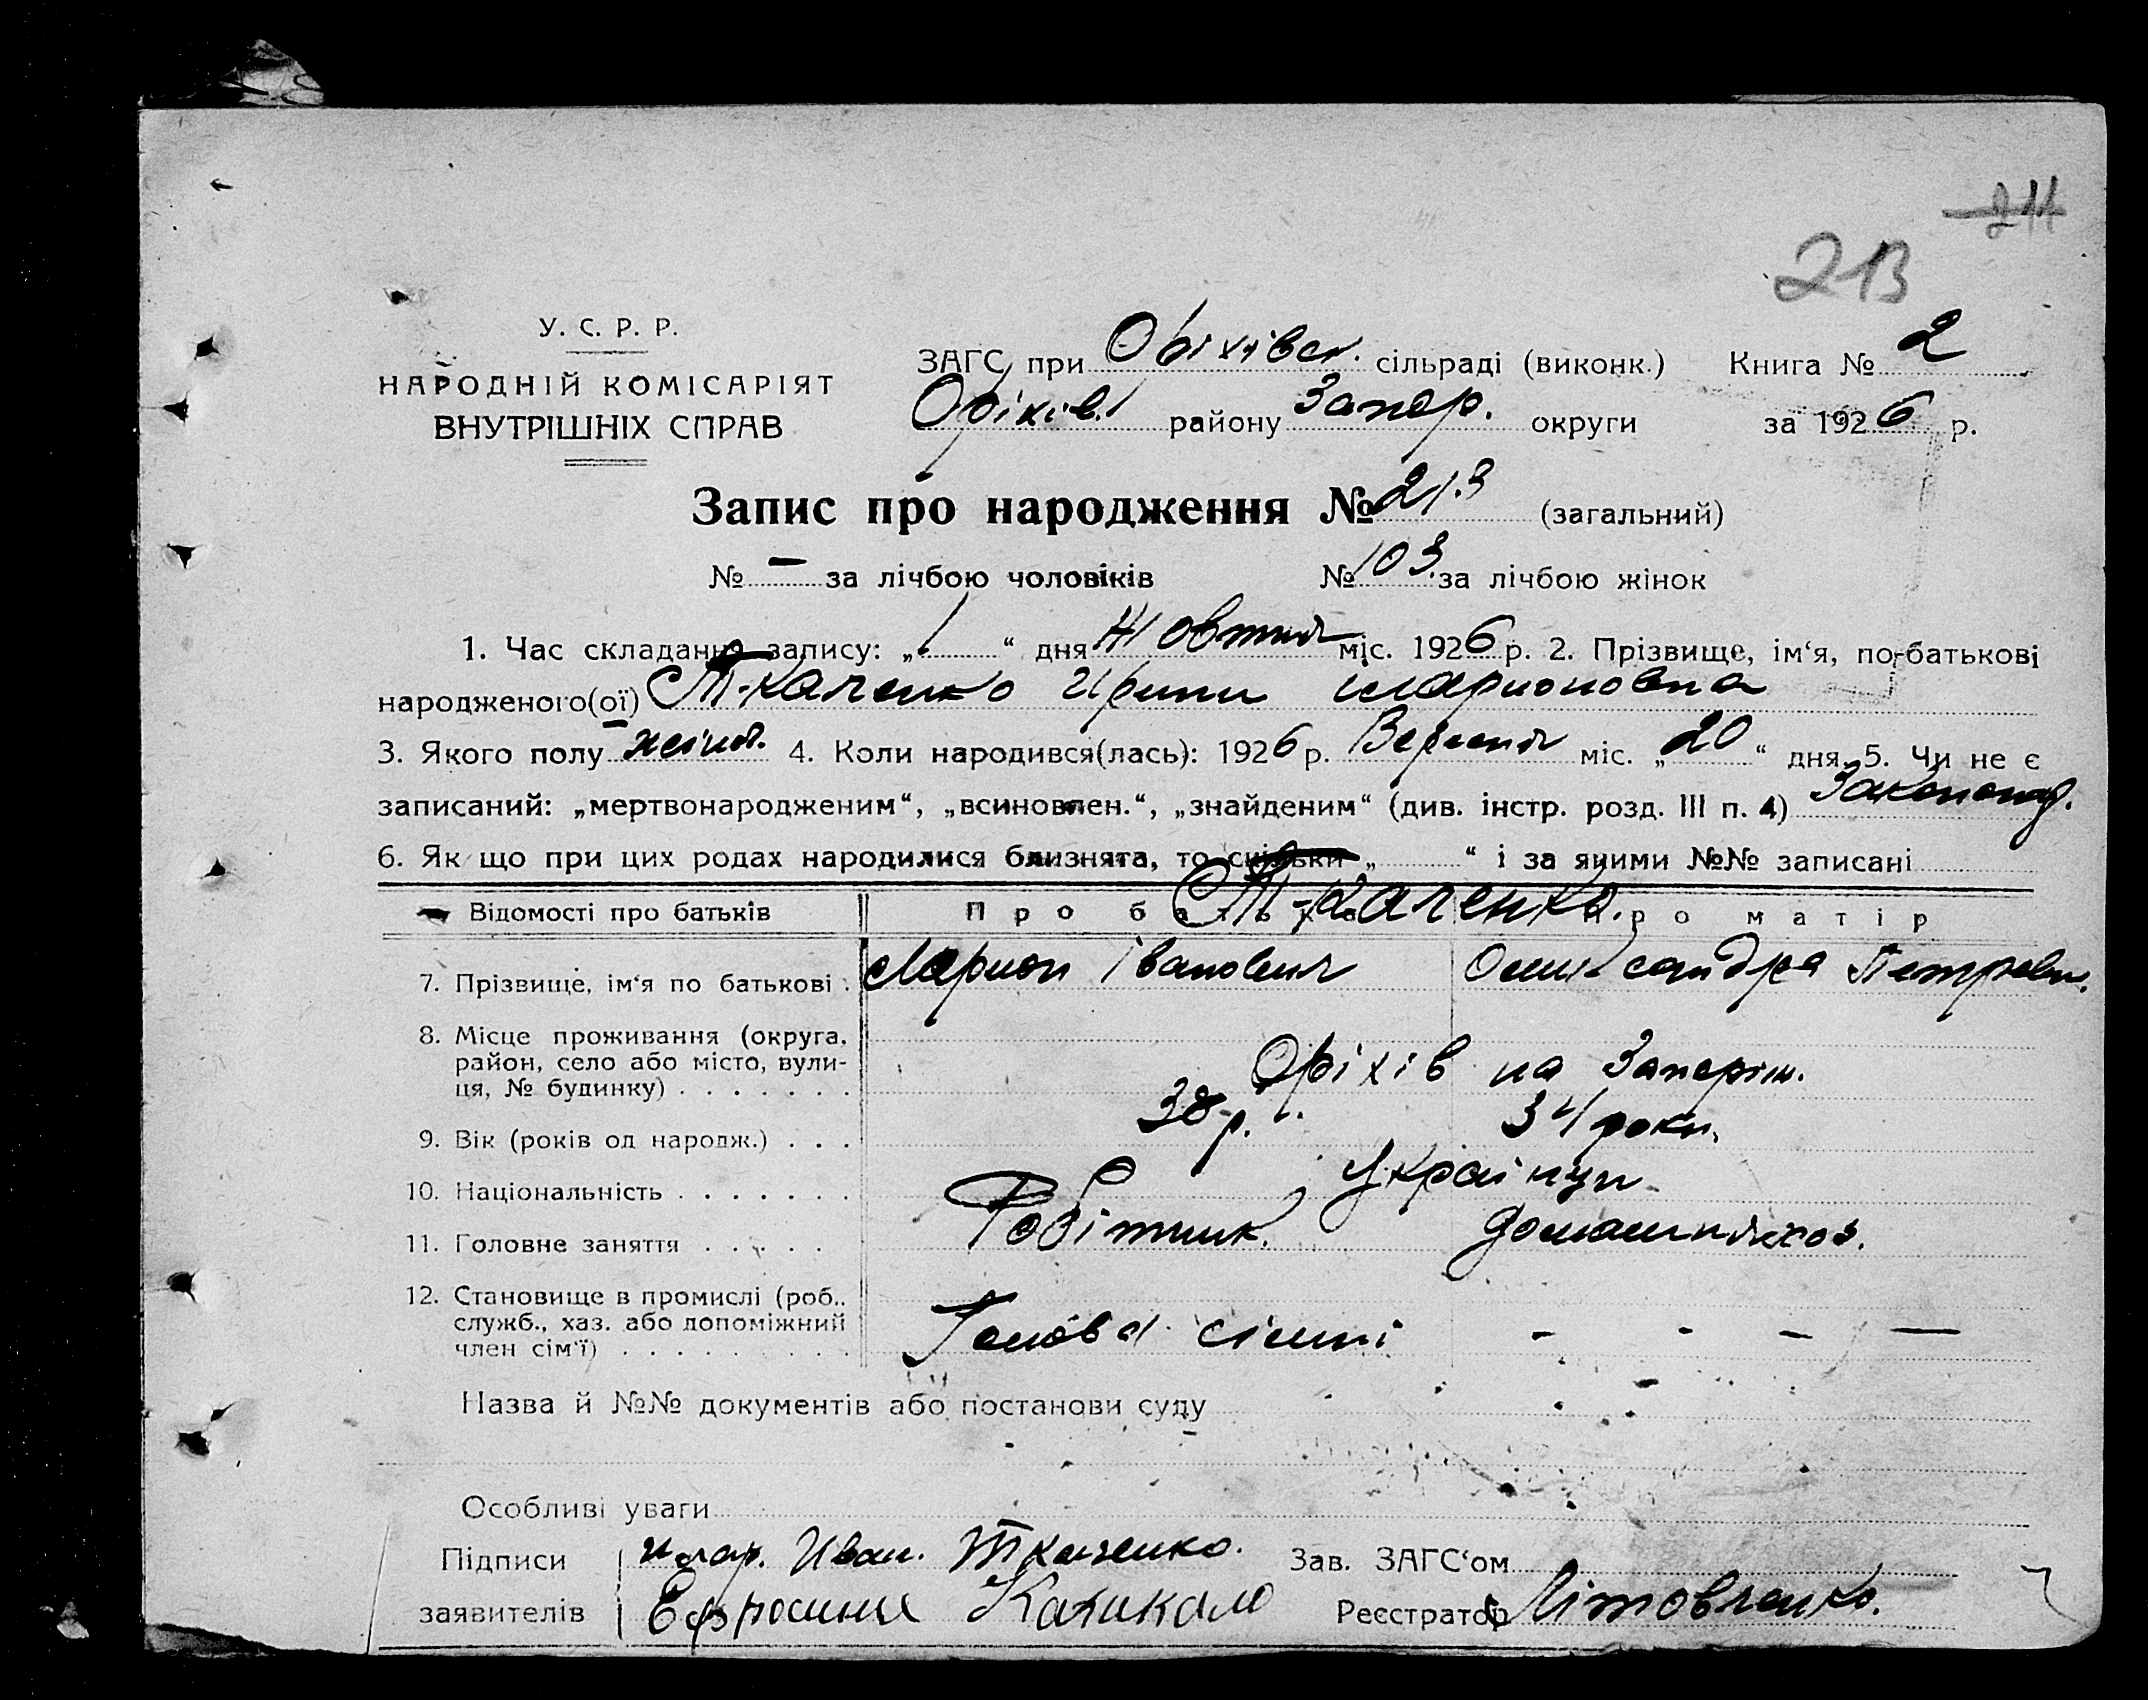 211
213
У. С. Р. Р.
НАРОДНІЙ КОМІСАРІЯТ
ВНУТРІШНІХ СПРАВ
ЗАГС при Оріхівськ. сільраді (виконк.) Книга № 2
Оріхів. району Запор. округи за 1926 р.
Запис про народження № 213 (загальний)
№ — за лічбою чоловіків № 103. за лічбою жінок
1. Час складання запису: „1“ дня Жовтня міс. 1926 р. 2. Прізвище, ім‘я, по-батькові
народженого(ої) Ткаченко Ирини
3. Якого полу жіноч. 4. Коли народився(лась): 1926 р. Вересня міс. „20“ дня 5. Чи не є
записаний: „мертвонародженим“, „всиновлен.“, „знайденим“ (див. інстр. розд. III п. 4)
6. Як що при цих родах народилися близнята, то скільки „ “ і за якими №№ записані
Відомості про батьків Про батька Про матір
Ткаченко.
7. Прізвище, ім‘я по батькові . Іванович Олександра Петровн.
8. Місце проживання (округа,
район, село або місто, вули-
ця, № будинку) . . . . . . . Оріхів на Запоріж.
9. Вік (років од народж.) . . . 38 р. 34 роки.
10. Національність . . . . . . . Українци
11. Головне заняття . . . . . Робітник. домашня хоз.
12. Становище в промислі (роб.,
служб., хаз. або допоміжний
член сім‘ї) . . . . . . . . . Голова сімні - - - —
Назва й №№ документів або постанови суду
Особливі уваги
Підписи Илар. Иван. Ткаченко. Зав. ЗАГС‘ом
заявителів Ефросиния Реєстратор Літовченко.